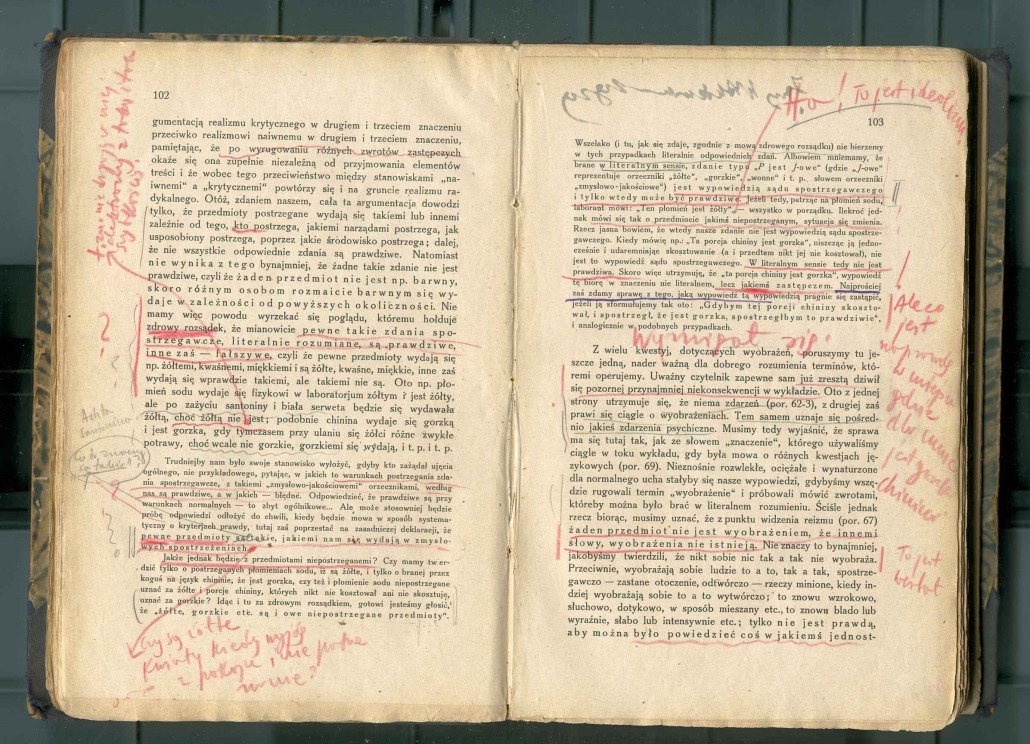 102
gumentacją realizmu krytycznego w drugiem i trzeciem znaczeniu
przeciwko realizmowi naiwnemu w drugiem i trzeciem znaczeniu,
pamiętając, że po wyrugowaniu różnych zwrotów zastępczych
okaże się ona zupełnie niezależną od przyjmowania elementów
treści i że wobec tego przeciwieństwo między stanowiskami „na-
iwnemi” a „krytycznemi” powtórzy się i na gruncie realizmu ra-
dykalnego. Otóż, zdaniem naszem, cała ta argumentacja dowodzi
tylko, że przedmioty postrzegane wydają się takiemi lub innemi
zależnie od tego, kto postrzega, jakiemi narządami postrzega, jak
usposobiony postrzega, poprzez jakie środowisko postrzega; dalej,
że nie wszystkie odpowiednie zdania są prawdziwe. Natomiast
nie wynika z tego bynajmniej, że żadne takie zdanie nie jest
prawdziwe, czyli że żaden przedmiot nie jest np. barwny,
skoro różnym osobom rozmaicie barwnym się wy-
daje w zależności od powyższych okoliczności. Nie
mamy więc powodu wyrzekać się poglądu, któremu hołduje
zdrowy rozsądek, że mianowicie pewne takie zdania spo-
strzegawcze, literalnie rozumiane, są prawdziwe,
inne zaś — fałszywe, czyli że pewne przedmioty wydają się
np. żółtemi, kwaśnemi, miękkiemi i są żółte, kwaśne, miękkie, inne zaś
wydają się wprawdzie takiemi, ale takiemi nie są. Oto np. pło-
mień sodu wydaje się fizykowi w laboratorjum żółtym i jest żółty,
ale po zażyciu santoniny i biała serweta będzie się wydawała
żółtą, choć żółtą nie jest; podobnie chinina wydaje się gorzką
i jest gorzka, gdy tymczasem przy ulaniu się żółci różne zwykłe
potrawy, choć wcale nie gorzkie, gorzkiemi się wydają, i t. p. i t. p.
Trudniejby nam było swoje stanowisko wyłożyć, gdyby kto zażądał ujęcia
ogólnego, nie przykładowego, pytając, w jakich to warunkach postrzegania zda-
nia spostrzegawcze, z takiemi „zmysłowo-jakościowemi” orzecznikami, według
nas są prawdziwe, a w jakich — błędne. Odpowiedzieć, że prawdziwe są przy
warunkach normalnych — to zbyt ogólnikowe... Ale może stosowniej będzie
próbę odpowiedzi odłożyć do chwili, kiedy będzie mowa w sposób systema-
tyczny o kryterjach prawdy, tutaj zaś poprzestać na zasadniczej deklaracji, że
pewne przedmioty są takie, jakiemi nam się wydają w zmysło-
wych spostrzeżeniach.
Jakże jednak będzie z przedmiotami niepostrzeganemi? Czy mamy twier-
dzić tylko o postrzeganych płomieniach sodu, iż są żółte, i tylko o branej przez
kogoś na język chininie, że jest gorzka, czy też i płomienie sodu niepostrzegane
uznać za żółte i porcje chininy, których nikt nie kosztował ani nie skosztuje,
uznać za gorzkie? Idąc i tu za zdrowym rozsądkiem, gotowi jesteśmy głosić,
że „żółte, gorzkie etc. są i owe niepostrzegane przedmioty”.
Czy są żółte
kwiaty kiedy wyjdę
z pokoju i nie
Ha! To jest idealizm
103
Wszelako (i tu, jak się zdaje, zgodnie z mową zdrowego rozsądku) nie bierzemy
w tych przypadkach literalnie odpowiednich zdań. Albowiem mniemamy, że
brane w literalnym sensie, zdanie typu „P jest J-owe” (gdzie „J-owe”
reprezentuje orzeczniki „żółte”, „gorzkie”, „wonne” i t. p. słowem orzeczniki
„zmysłowo-jakościowe”) jest wypowiedzią sądu spostrzegawczego
i tylko wtedy może być prawdziwe. Jeżeli tedy, patrząc na płomień sodu,
laborant mówi: „Ten płomień jest żółty” — wszystko w porządku. Ilekroć jed-
nak mówi się tak o przedmiocie jakimś niepostrzeganym, sytuacja się zmienia.
Rzecz jasna bowiem, że wtedy nasze zdanie nie jest wypowiedzią sądu spostrze-
gawczego. Kiedy mówię np.: „Ta porcja chininy jest gorzka”, niszcząc ją jedno-
cześnie i udaremniając skosztowanie (a i przedtem nikt jej nie kosztował), nie
jest to wypowiedź sądu spostrzegawczego. W literalnym sensie tedy nie jest
prawdziwa. Skoro więc utrzymuję, że „ta porcja chininy jest gorzka”, wypowiedź
tę biorę w znaczeniu nie literalnem, lecz jakiemś zastępczem. Najprościej
zaś zdamy sprawę z tego, jaką wypowiedź tą wypowiedzią pragnie się zastąpić,
jeżeli ją sformułujemy tak oto: „Gdybym tej porcji chininy skoszto-
wał, i spostrzegł, że jest gorzka, spostrzegłbym to prawdziwie”,
i analogicznie w podobnych przypadkach.
wymigał się.
Z wielu kwestyj, dotyczących wyobrażeń, poruszymy tu je-
szcze jedną, nader ważną dla dobrego rozumienia terminów, któ-
remi operujemy. Uważny czytelnik zapewne sam już zresztą dziwił
się pozornej przynajmniej niekonsekwencji w wykładzie. Oto z jednej
strony utrzymuje się, że niema zdarzeń (por. 62-3), z drugiej zaś
prawi się ciągle o wyobrażeniach. Tem samem uznaje się pośred-
nio jakieś zdarzenia psychiczne. Musimy tedy wyjaśnić, że sprawa
ma się tutaj tak, jak ze słowem „znaczenie”, którego używaliśmy
ciągle w toku wykładu, gdy była mowa o różnych kwestjach ję-
zykowych (por. 69). Nieznośnie rozwlekłe, ociężałe i wynaturzone
dla normalnego ucha stałyby się nasze wypowiedzi, gdybyśmy wszę-
dzie rugowali termin „wyobrażenie” i próbowali mówić zwrotami,
któreby można było brać w literalnem rozumieniu. Ściśle jednak
rzecz biorąc, musimy uznać, że z punktu widzenia reizmu (por. 67)
żaden przedmiot nie jest wyobrażeniem, że innemi
słowy, wyobrażenia nie istnieją. Nie znaczy to bynajmniej,
jakobyśmy twierdzili, że nikt sobie nic tak a tak nie wyobraża.
Przeciwnie, wyobrażają sobie ludzie to a to, tak a tak, spostrze-
gawczo — zastane otoczenie, odtwórczo — rzeczy minione, kiedy in-
dziej wyobrażają sobie to a to wytwórczo; to znowu wzrokowo,
słuchowo, dotykowo, w sposób mieszany etc., to znowu blado lub
wyraźnie, słabo lub intensywnie etc.; tylko nie jest prawdą,
aby można było powiedzieć coś w jakiemś jednost-